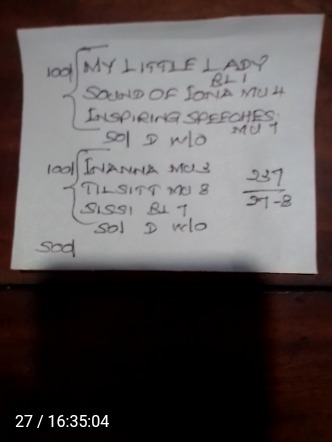 100/ MY LITTLE LADY
BL 1
SOUND OF IONA MU 4
INSPIRING SPEECHES
MU 7
50/ D W/O
100/ INANNA MU 3
TILSITT MU 8
SISSI BL 7
50/ D W/O
237
27-8
500/
27 / 16:35:04